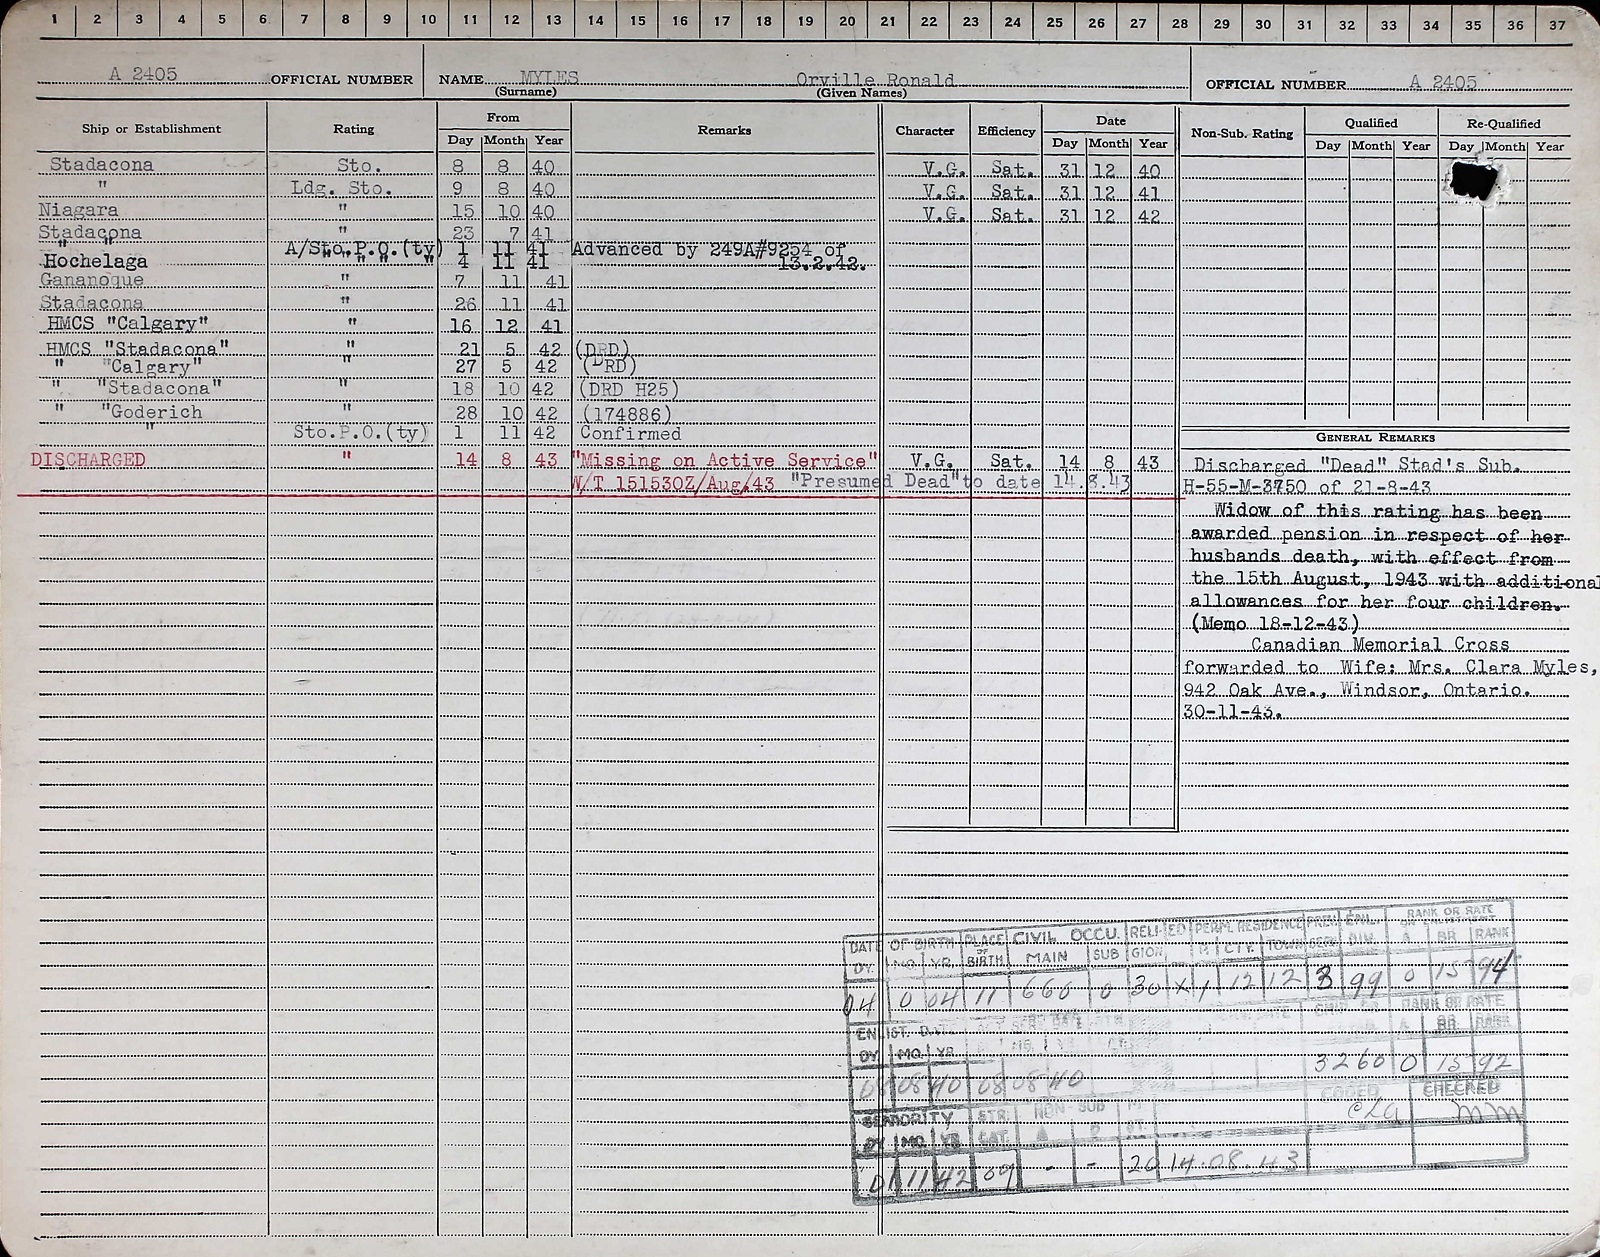 1 2 3 4 5 6 7 8 9 10 11 12 13 14 15 16 17 18 19 20 21 22 23 24 25 26 27 28 29 30 31 32 33 34 35 36 37
A 2405 OFFICIAL NUMBER NAME MYLES Orville Ronald OFFICIAL NUMBER A 2405
(Surname) (Given Names)
Ship or Establishment Rating From Remarks Character Efficiency Date Non-Sub. Rating Qualified Re-Qualified
Day Month Year Day Month Year Day Month Year Day Month Year
Stadacona Sto. 8 8 40 V.G. Sat. 31 12 40
" Ldg. Sto. 9 8 40 V.G. Sat. 31 12 41
Niagara " 15 10 40 V.G. Sat. 31 12 42
Stadacona " 23 7 41
" " A/Sto.P.O.(ty) 1 11 41 Advanced by 249A#9254 of
Hochelaga " " " " 4 11 41 13.2.42.
Gananoque " 7 11 41
Stadacona " 26 11 41
HMCS "Calgary" " 16 12 41
HMCS "Stadacona" " 21 5 42 (DRD)
" "Calgary" " 27 5 42 (DRD)
" "Stadacona" " 18 10 42 (DRD H25)
" "Goderich " 28 10 42 (174886)
" Sto.P.O.(ty) 1 11 42 Confirmed
DISCHARGED " 14 8 43 "Missing on Active Service" V.G. Sat. 14 8 43
W/T 151530Z/Aug/43 "Presumed Dead" to date 14.8.43
GENERAL REMARKS
Discharged "Dead" Stad's Sub.
H-55-M-3750 of 21-8-43
Widow of this rating has been
awarded pension in respect of her
husbands death, with effect from
the 15th August, 1943 with additional
allowances for her four children.
(Memo 18-12-43)
Canadian Memorial Cross
forwarded to Wife: Mrs. Clara Myles,
942 Oak Ave., Windsor, Ontario.
30-11-43.
DATE OF BIRTH PLACE OF BIRTH CIVIL OCCU. RELI-GION ED PERM. RESIDENCE RANK OR RATE
DY. MO. YR. MAIN SUB CTY. TOWN A BR. RANK
04 0 04 11 666 0 30 X 1 12 12 3 99 0 15 94
ENLIST. RANK OR RATE
DY. MO. YR. A BR. RANK
08 08 40 08 08 40 3260 0 15 92
CODED CHECKED
SENIORITY STR. CAT. NON-SUB
DY. MO. YR.
01 11 42 09 - - 20 14.08.43